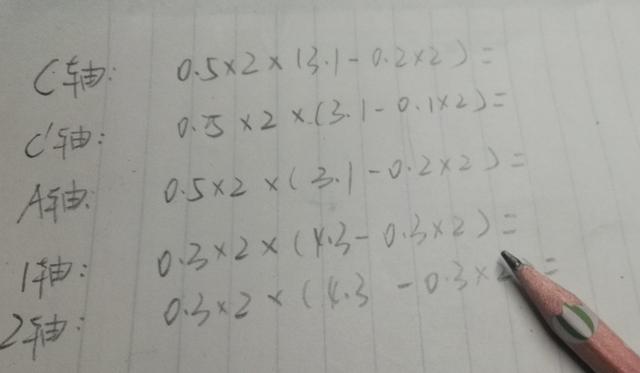 C轴: 0.5×2×(3.1-0.2×2)=
C'轴: 0.5×2×(3.1-0.1×2)=
A轴: 0.5×2×(3.1-0.2×2)=
1轴: 0.3×2×(4.3-0.3×2)=
2轴: 0.3×2×(4.3-0.3×2)=